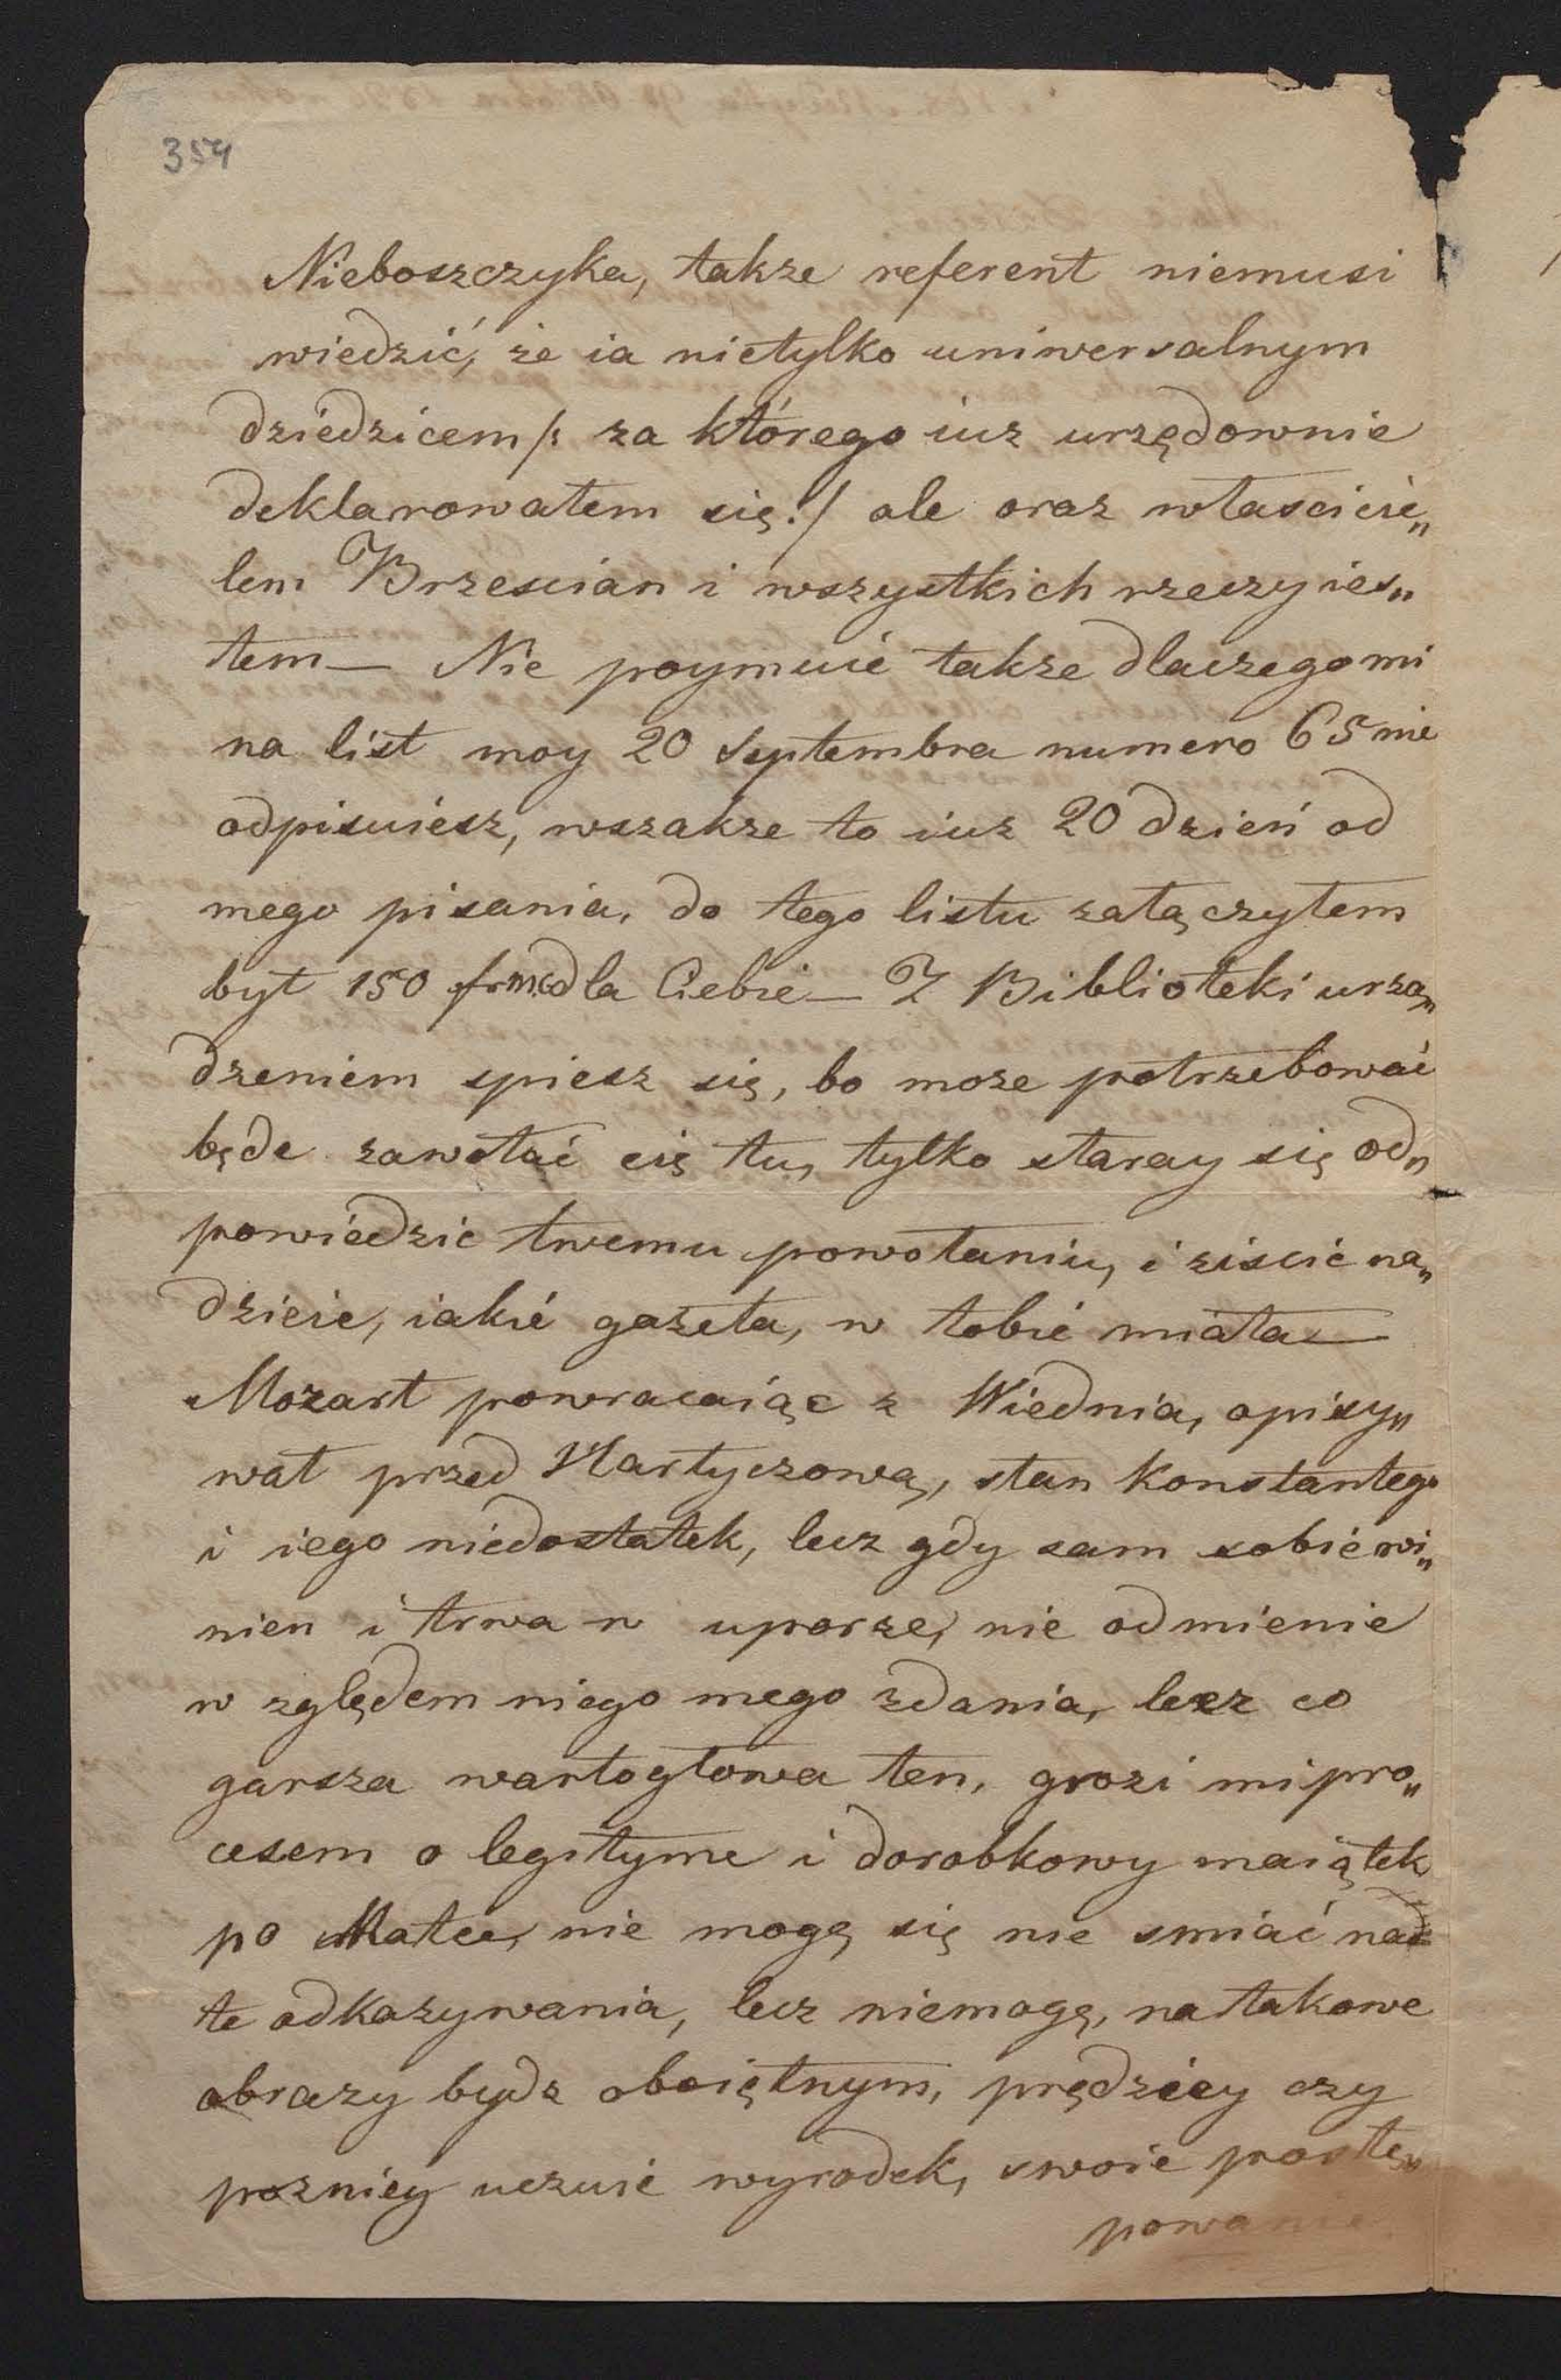 354
Nieboszczyka, takze referent niemusi
wiedzić, że ia nietylko uniwersalnym
dziedzicem /: za którego iuz urzędownie
deklarowałem się :/ ale oraz własciicie„
lem Brzescian i wszystkich rzeczy ies„
tem — Nie poymuié takze dlaczego mi
na list moy 20 Septembra numero 65 nie
odpisuiesz, wszakze to iuz 20 dzień od
mego pisania, do tego listu załączyłem
był 150 dla Ciebie — Z Biblioteki urzą„
dzeniem spiesz się, bo moze potrzebować
będe zawołać cię tu, tylko staray się od„
powiedzic twemu powołaniu, i ziscić na„
dzieie, iakié gazeta, w tobié miała —
Mozart powracaiąc z Wiednia, opisy„
wał przed Hartyczową, stan Konstantego
i iego niedostatek, lecz gdy sam sobié wi„
nien i trwa w uporze, nie odmienie
w zględem niego mego zdania, lecz co
garsza wartogłowa ten, grozi mi pro„
cesem o legityme i dorobkowy maiątek
po Matce, nie mogę się nie smiać nad
te odkazywania, lecz niemogę, na takowe
obrazy bydz oboiętnym, prędzéy czy
pozniey uczuié wyrodek, swoie postę„
powanie